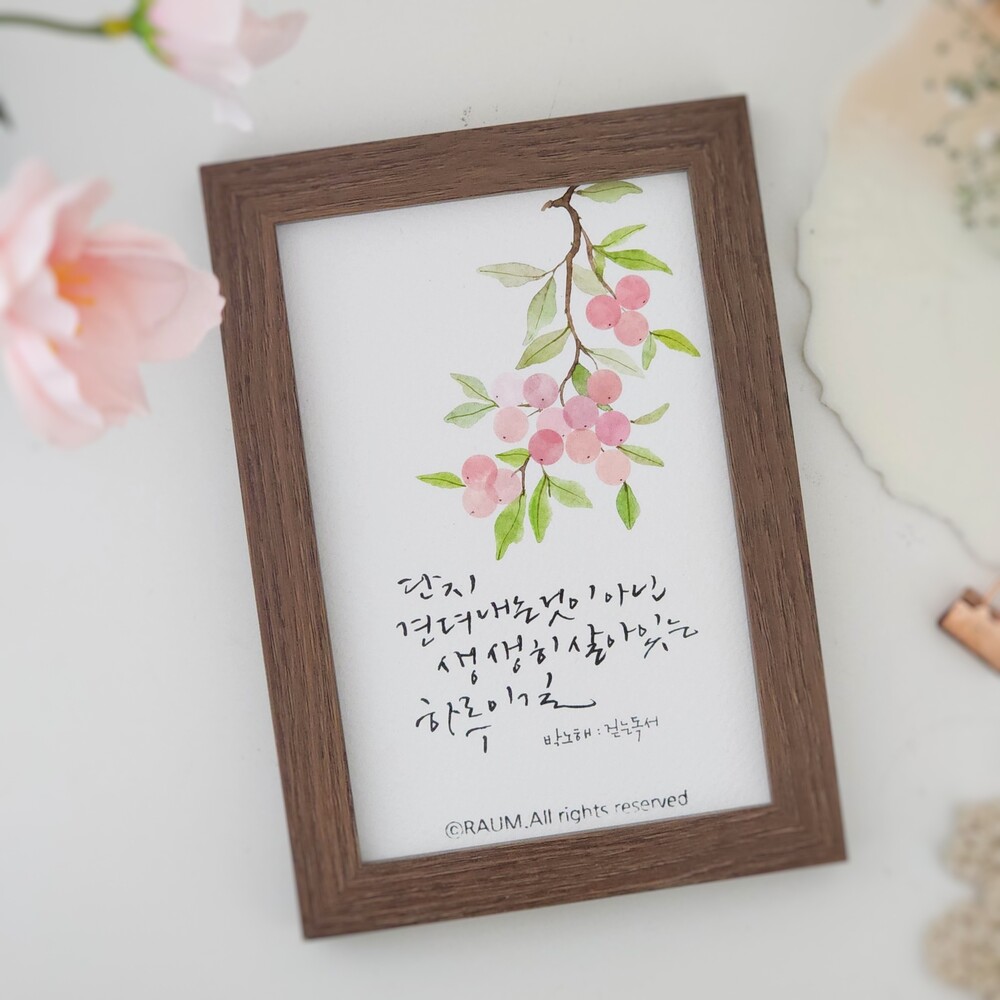 단지
견뎌내는 것이 아닌
생생히 살아있는
하루이길
박노해 : 걷는독서
©RAUM.All rights reserved